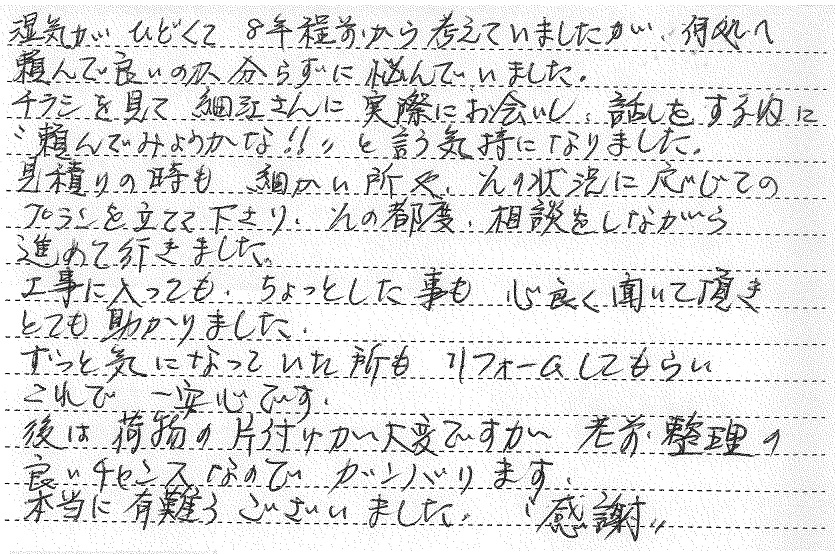 湿気がひどくて 8年程前から考えていましたが、何処へ
頼んで良いのか、分らずに悩んでいました。
チラシを見て 細江さんに実際にお会いし、話しをする内に
〝頼んでみようかな!!〟と言う気持になりました。
見積りの時も 細かい所や、その状況に応じての
プランを立てて下さり、その都度、相談をしながら
進めて行きました。
工事に入っても、ちょっとした事も 心良く聞いて頂き
とても助かりました。
ずっと気になっていた所も リフォームしてもらい
これで 一安心です。
後は 荷物の片付けが大変ですが 老前整理の
良いチャンスなので ガンバります。
本当に有難うございました。 〝感謝〟